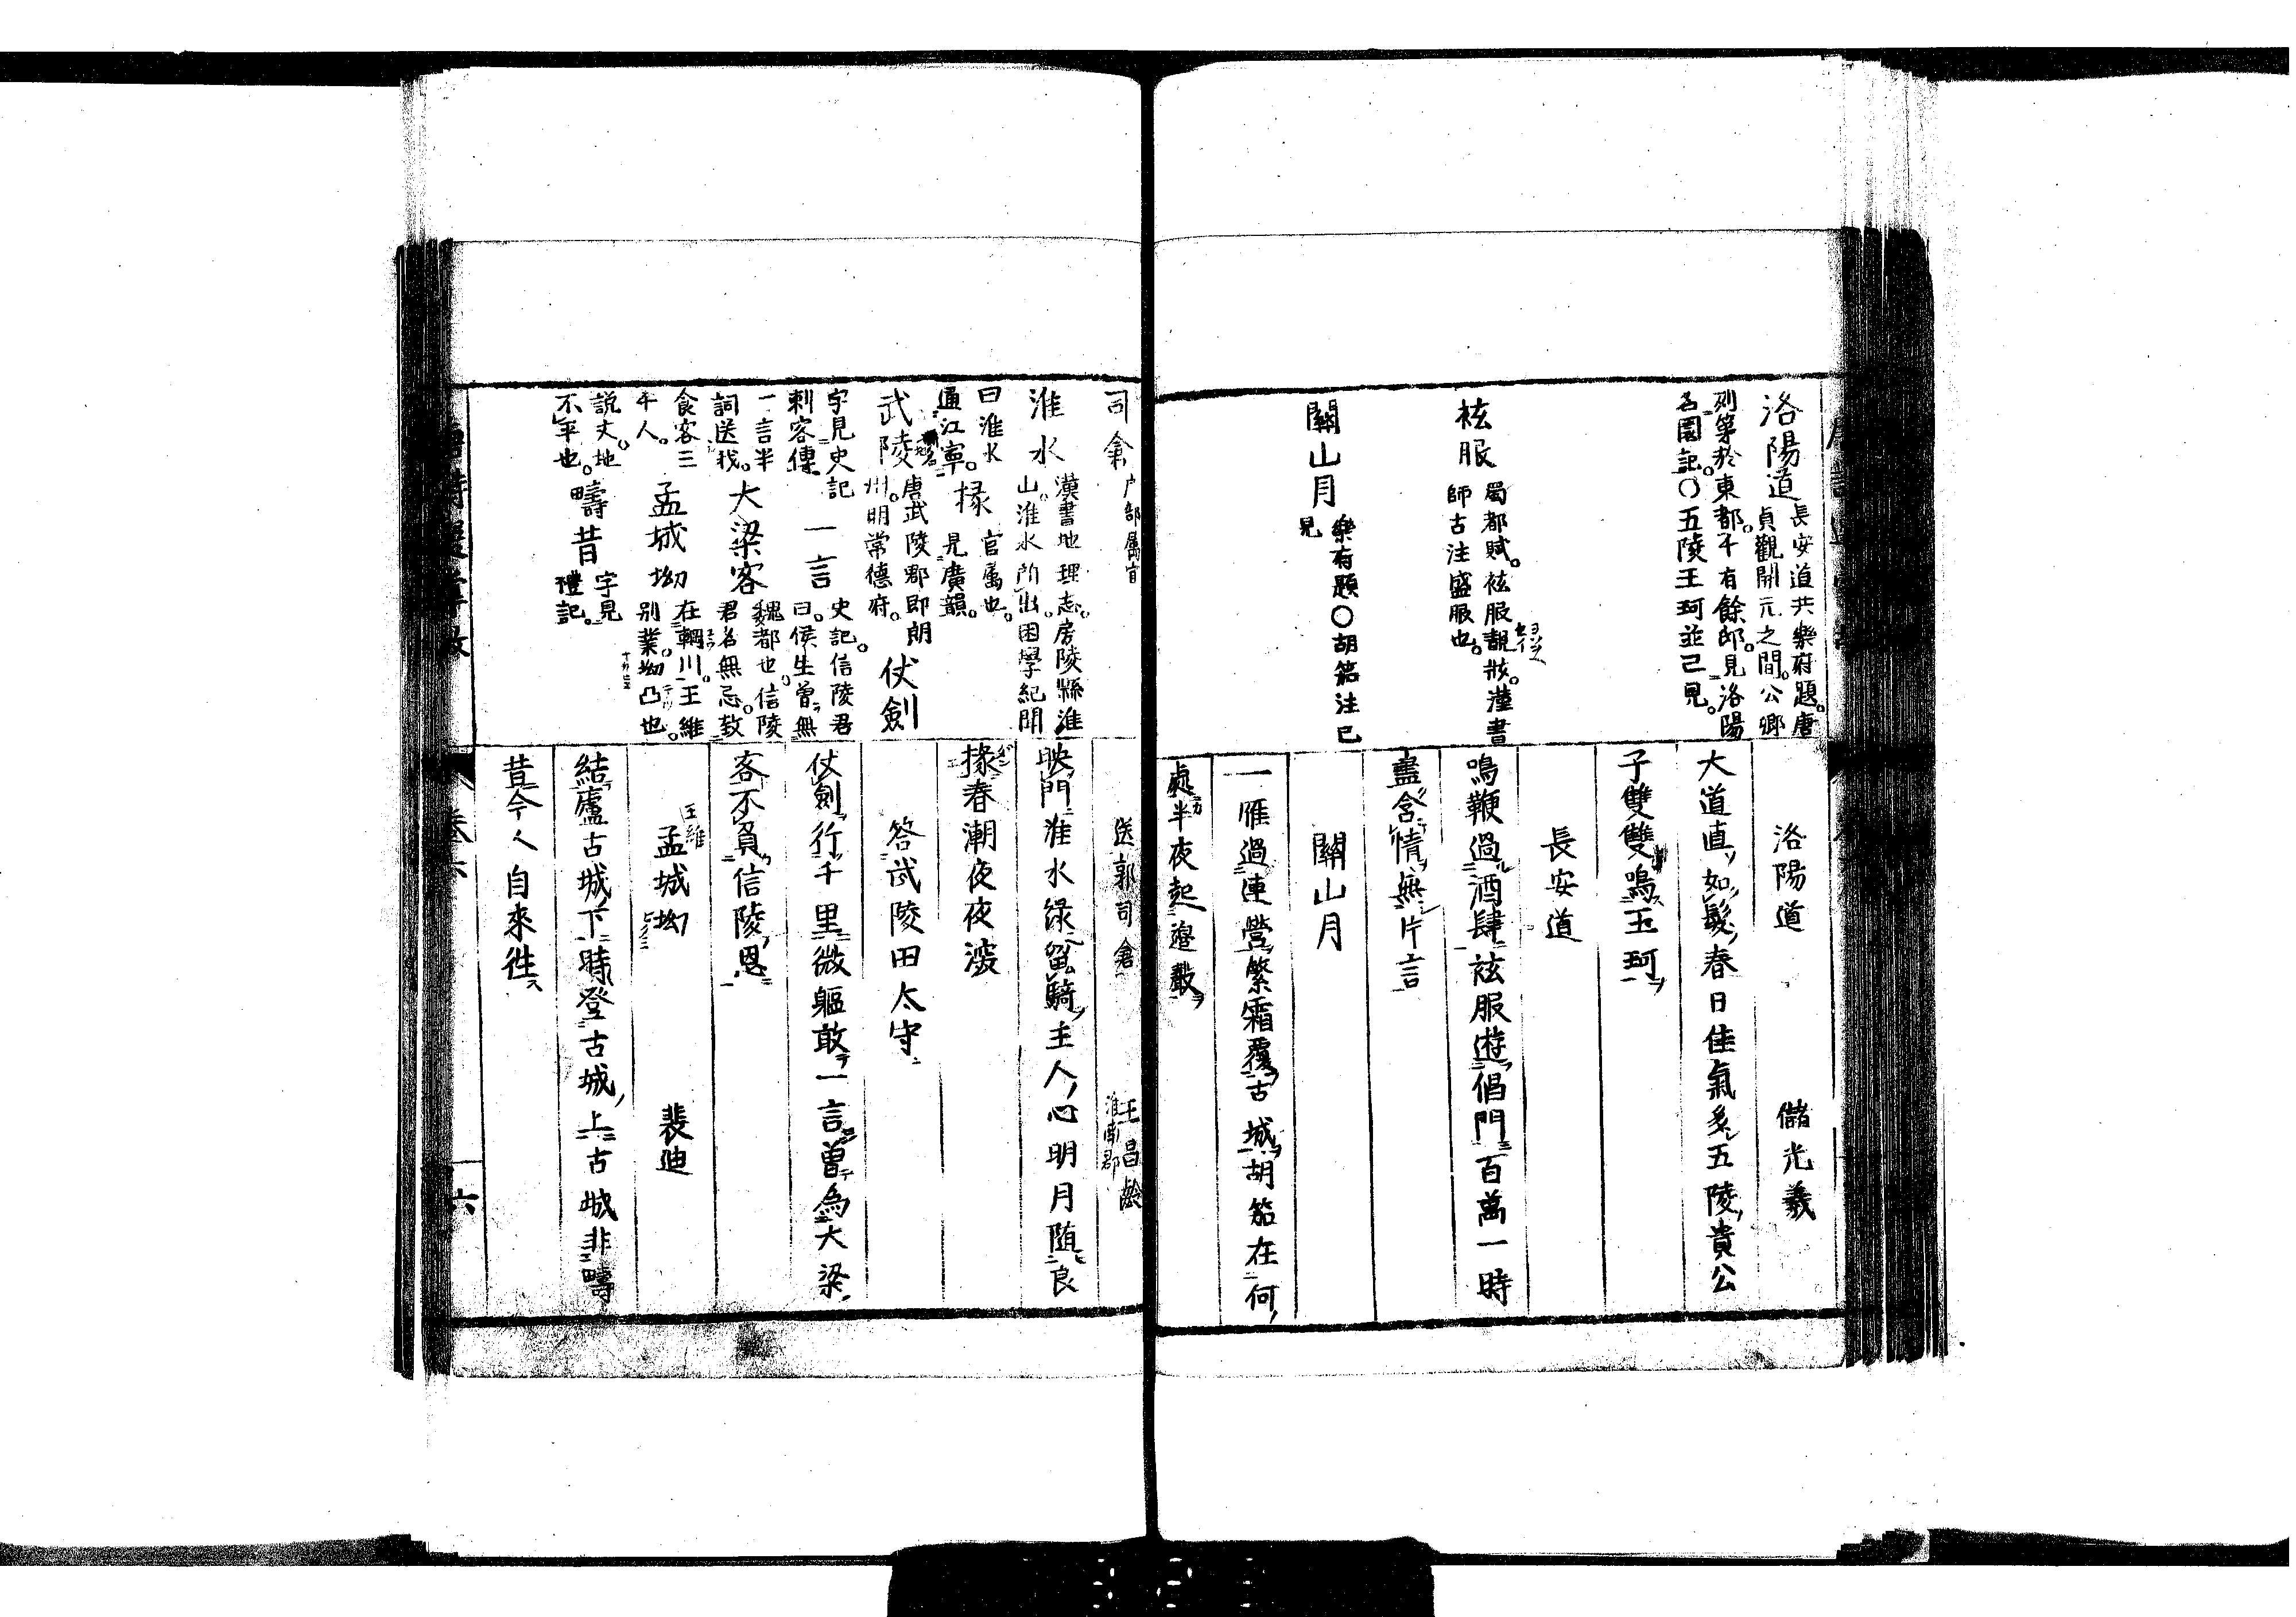 洛陽道
長安道共樂府題。唐
貞觀開元之間。公卿
列第於東都。千有餘邸。見洛陽
名園記。〇五陵王珂並已見。
袨服
蜀都賦。袨服靚粧。漢書
師古注盛服也。
關山月
樂府題〇胡笳注已
見
洛陽道 儲光羲
大道直如髮春日佳氣多五陵貴公
子雙雙鳴玉珂
長安道
鳴鞭過酒肆袨服遊倡門百萬一時
盡含情無片言
關山月
一雁過連營繁霜覆古城胡笳在何
處半夜起邊聲
司倉
戶部屬官
淮水
漢書地理志。房陵縣淮
山。淮水所出。困學紀聞
曰淮水
通江寧。
掾
官屬也。
見廣韻。
武陵
唐武陵郡即朗
州。明常德府。
仗劍
字見史記
刺客傳
一言
史記。信陵君
曰。侯生曾無
一言半
詞送我。
大梁客
魏都也。信陵
君名無忌。致
食客三
千人。
孟城坳
在輞川。王維
別業。坳凸也。
說文。地
不平也。
疇昔
字見
禮記。
送郭司倉 王昌齡
淮南郡
映門淮水綠留騎主人心明月隨良
掾春潮夜夜深
答武陵田太守
仗劍行千里微軀敢一言曾為大梁
客不負信陵恩
王維
孟城坳 裴迪
結廬古城下時登古城上古城非疇
昔今人自來往
卷六
六